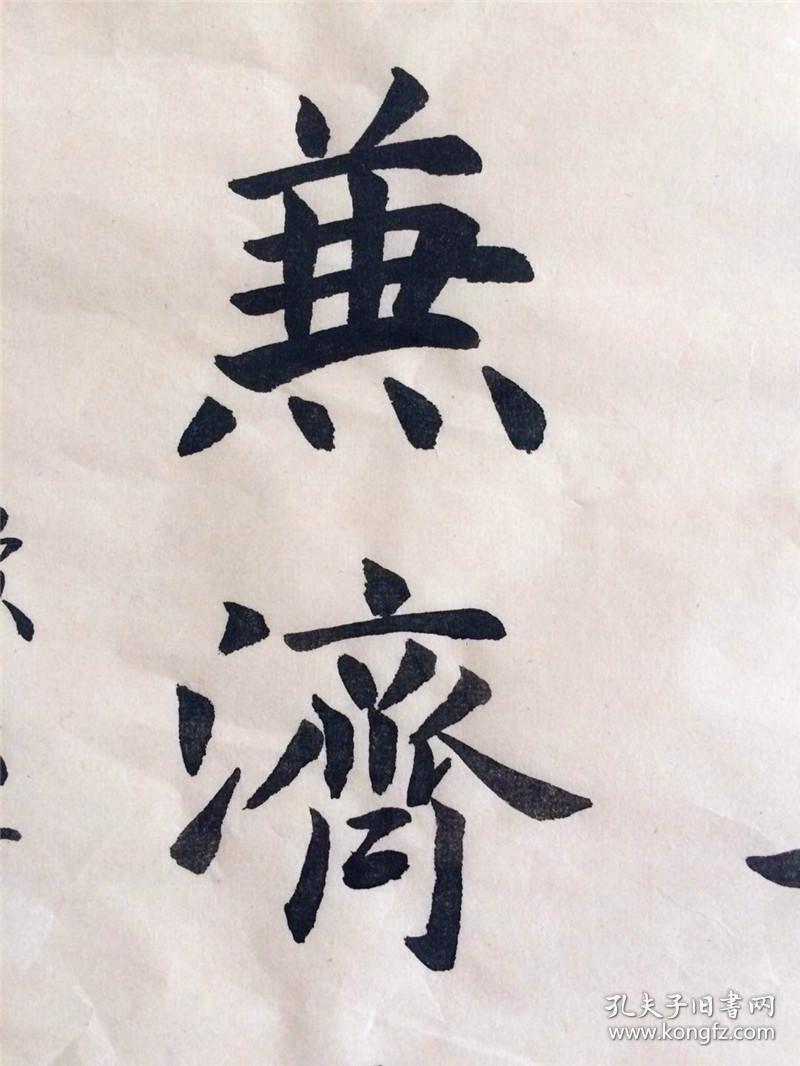 兼濟
孔夫子旧書网
www.kongfz.com